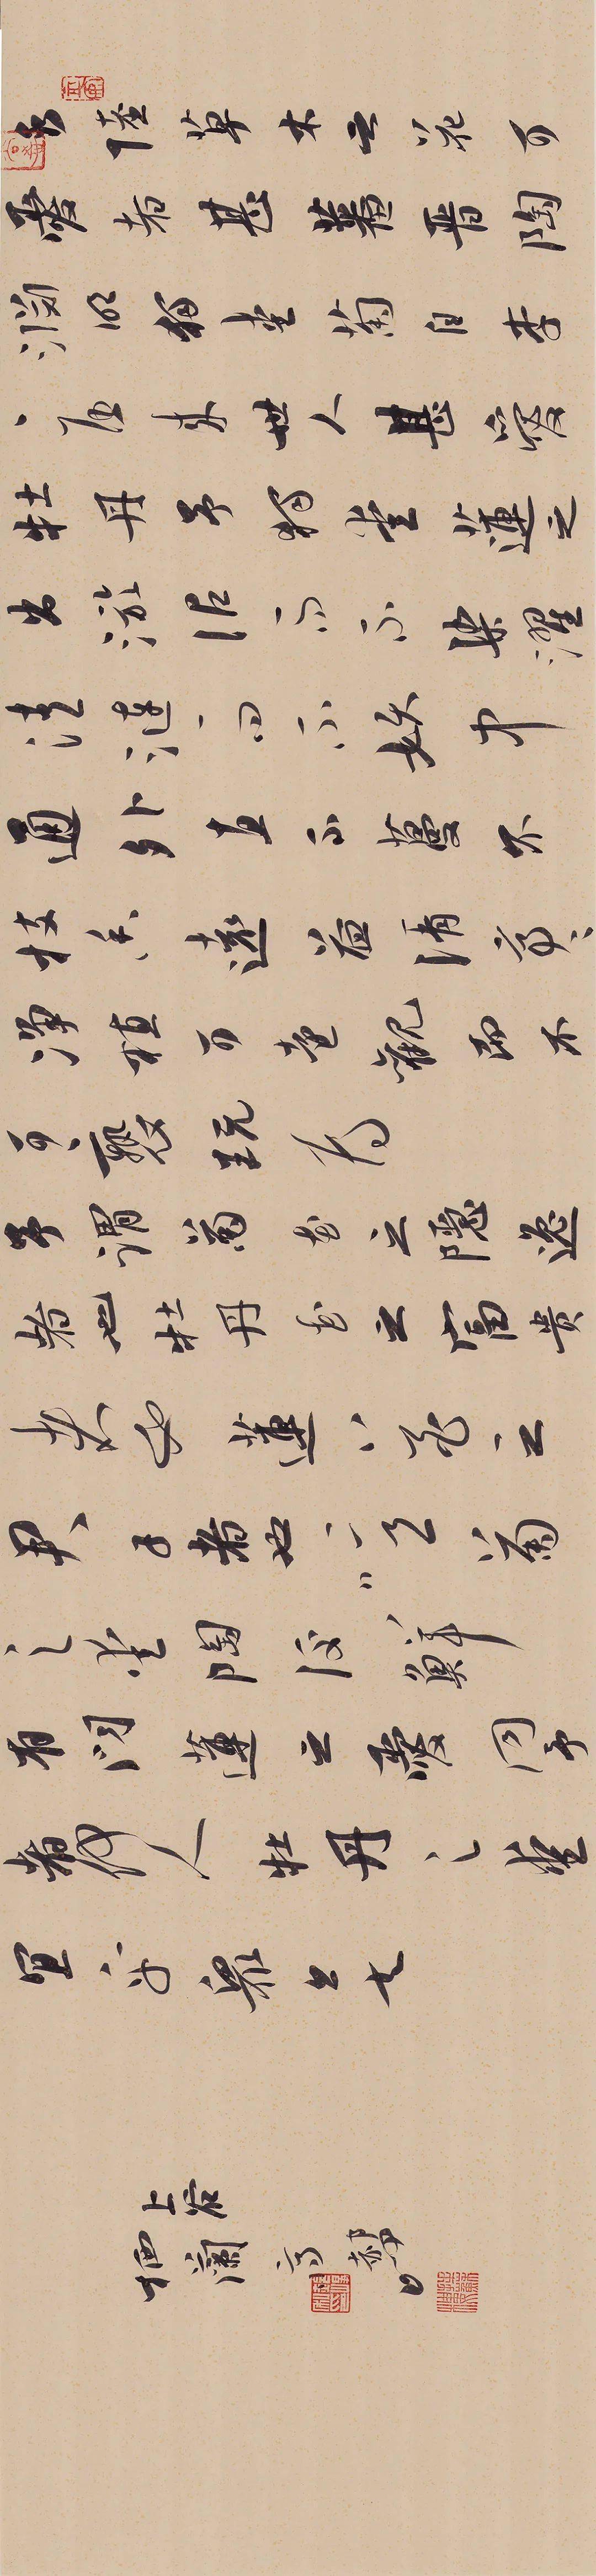 水陸草木之花可
愛者甚蕃晉陶
淵明獨愛菊自李
唐來世人甚愛
牡丹予獨愛蓮之
出淤泥而不染濯
清漣而不妖中
通外直不蔓不
枝香遠益清亭亭
淨植可遠觀而不
可褻玩焉
予謂菊花之隱逸
者也牡丹花之富貴
者也蓮花之
君子者也噫菊
之愛陶後鮮
有聞蓮之愛同予
者何人牡丹之愛
宜乎眾矣
上谷